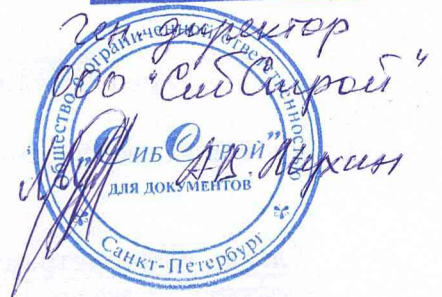 Ген. директор
ООО "СибСтрой"
Общество с ограниченной ответственностью
"СибСтрой"
А.В.
ДЛЯ ДОКУМЕНТОВ
Санкт-Петербург